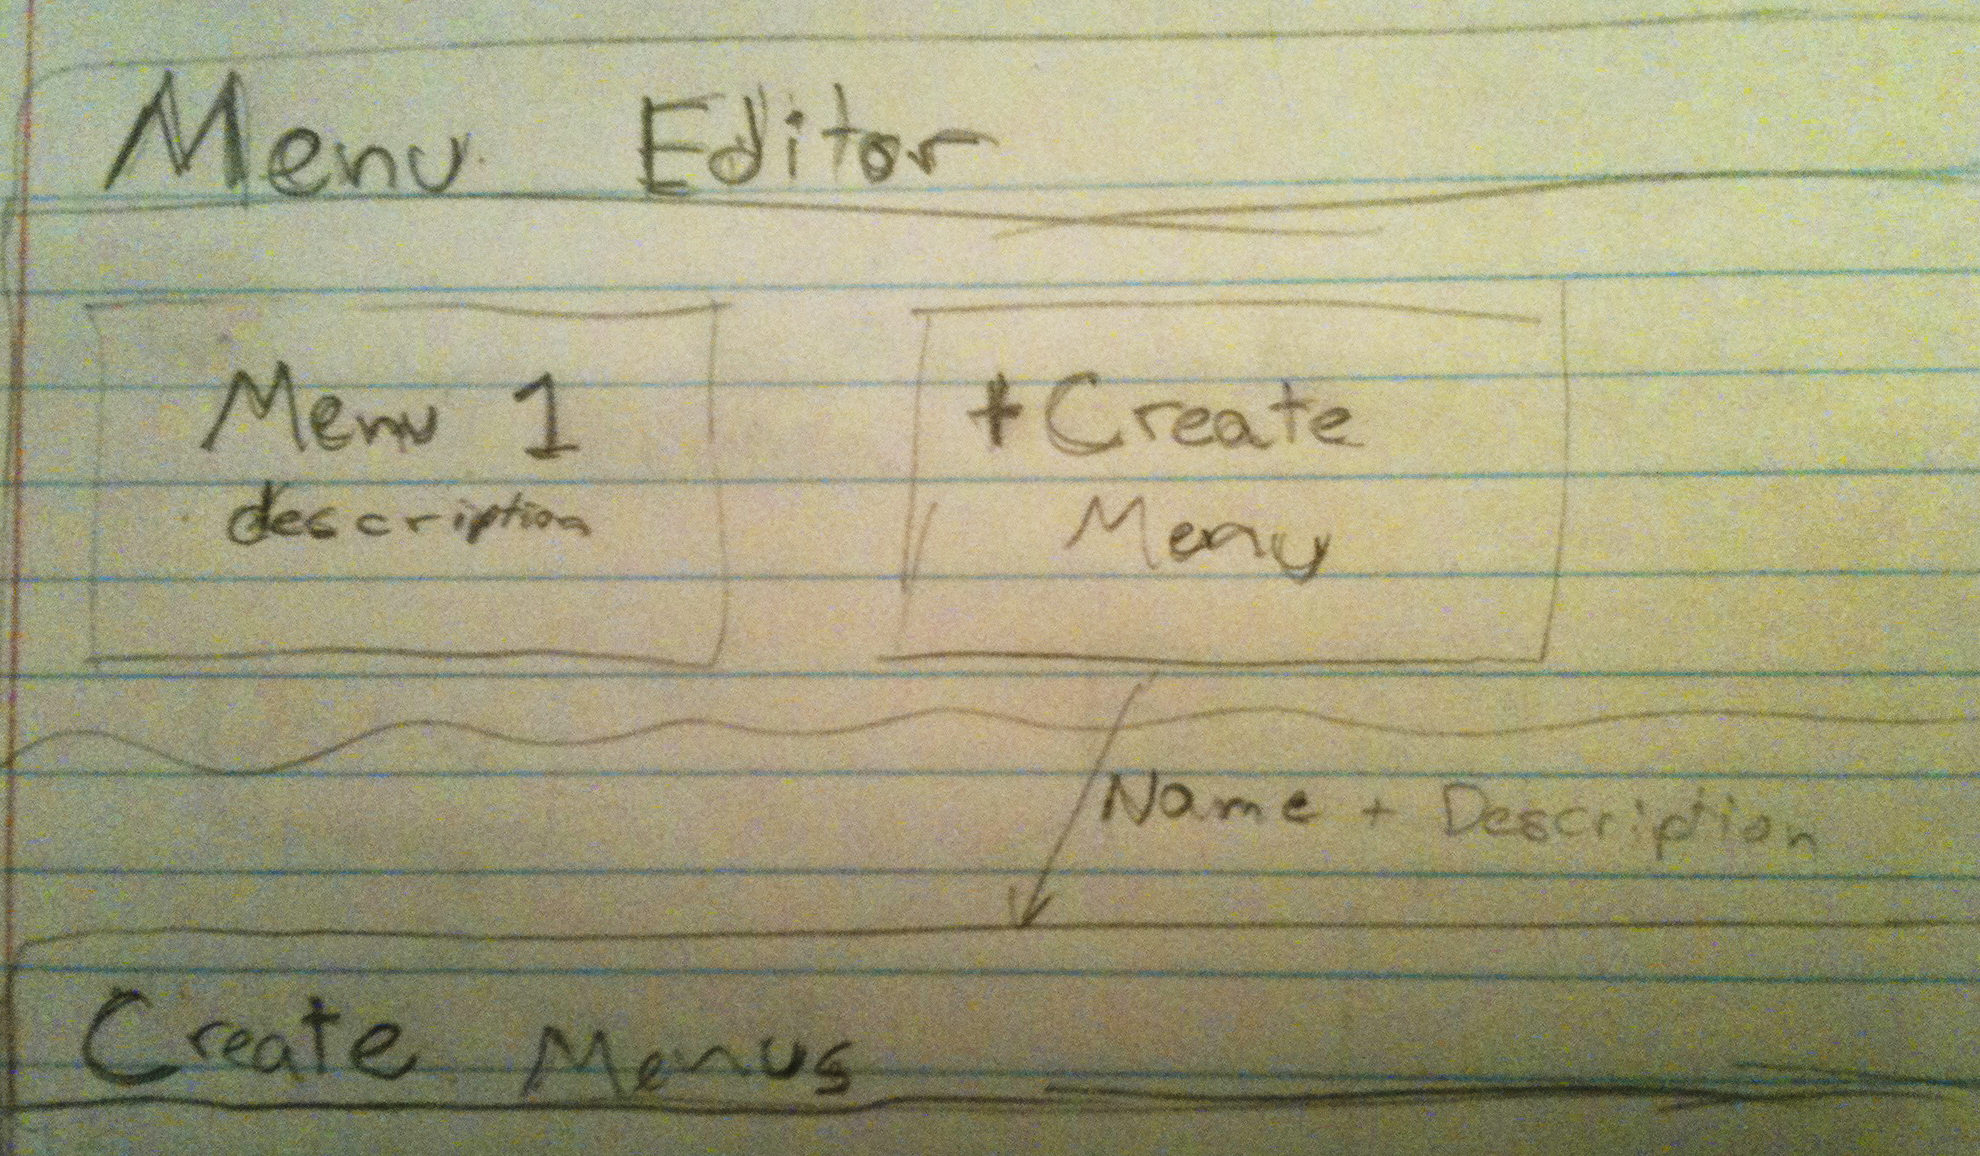 Menu Editor
Menu 1
description
+ Create
Menu
Name + Description
Create Menus